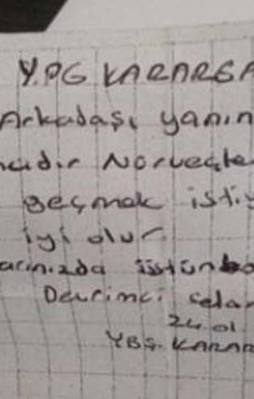 Y.PG KARARGA
Arkadaşı yanın
cıdır Norveçte
geçmek istiy
iyi olur
arınızda üstün
Devrimci selam
24 01
YBŞ. KARAR